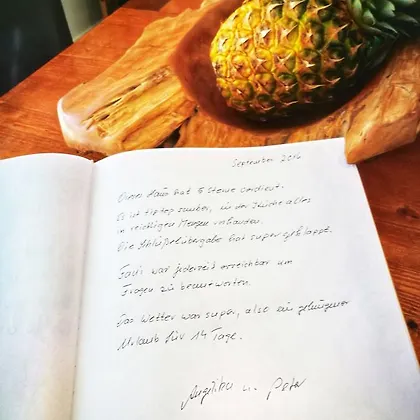 September 2016
Dieses Haus hat 5 Sterne verdient.
Es ist tip top sauber, in der Küche alles
in reichlichen Mengen vorhanden.
Die Schlüsselübergabe hat super geklappt.
war jederzeit erreichbar um
Fragen zu beantworten.
Das Wetter war super, also ein gelungener
Urlaub für 14 Tage.
Angelika u. Peter